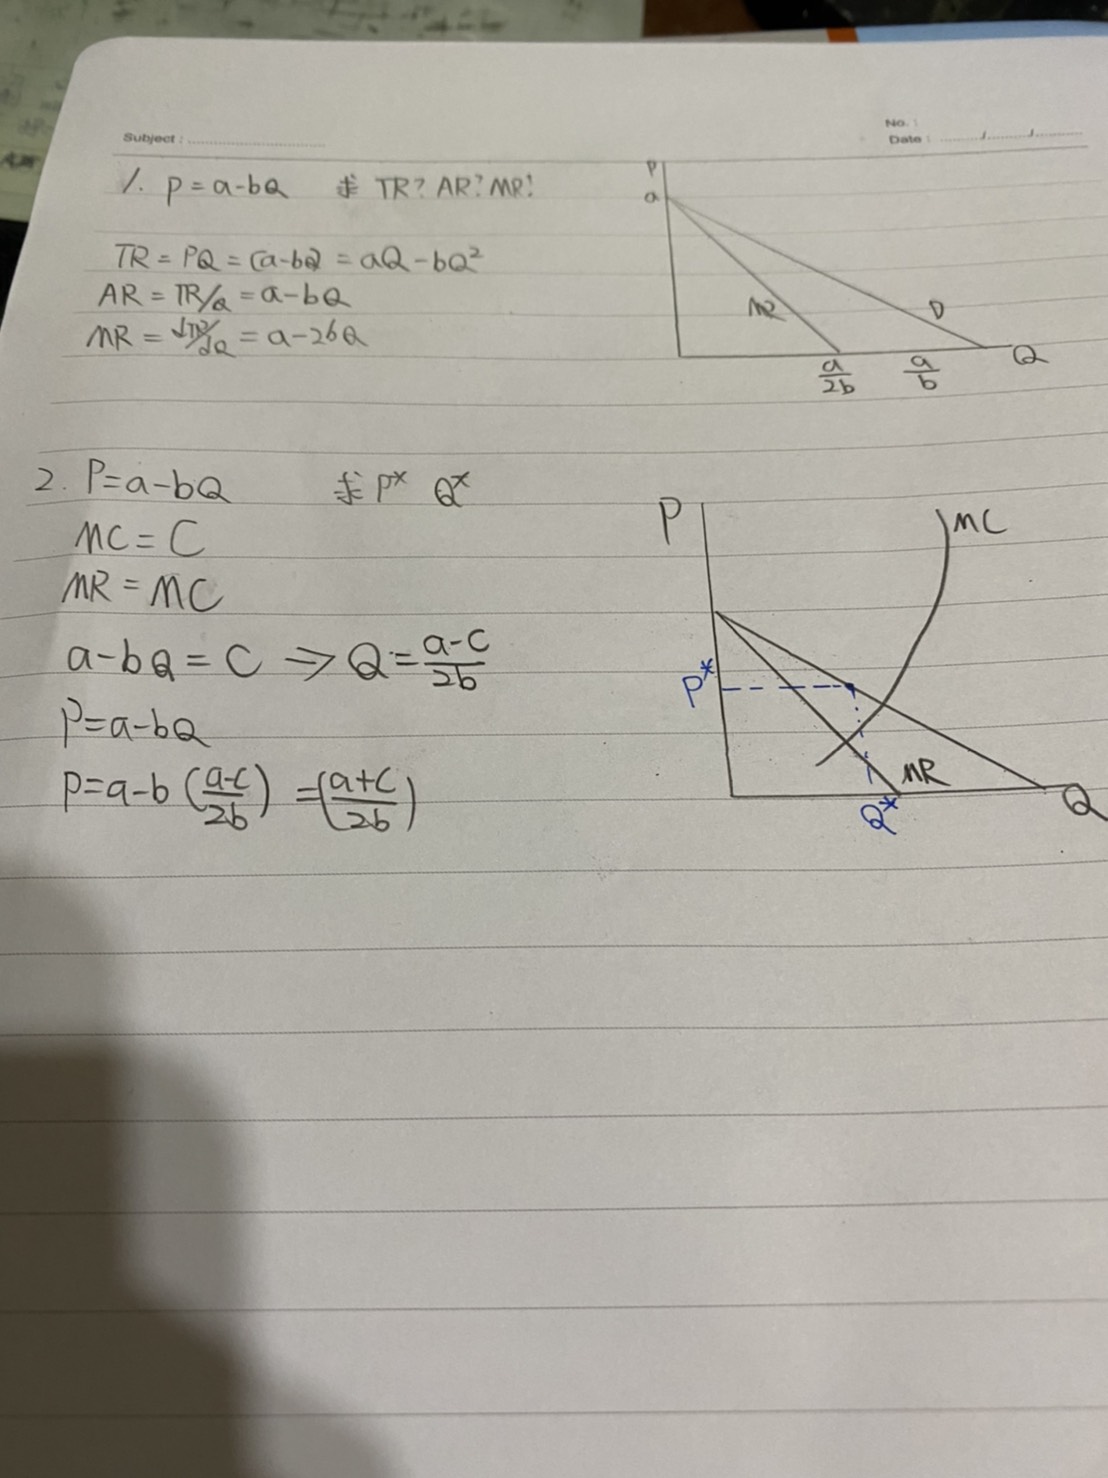 Subject :
No. :
Date : / /
1. P = a-bQ 求 TR? AR? MR!
TR = PQ = (a-bQ = aQ-bQ²
AR = TR/Q = a-bQ
MR = dTR/dQ = a-2bQ
P
a
MR
D
a/2b
a/b
Q
2. P=a-bQ 求 P* Q*
MC = C
MR = MC
a-bQ = C ⇒ Q = a-C/2b
P=a-bQ
P=a-b(a-c/2b) = (a+c/2b)
P
MC
P*
MR
Q*
Q